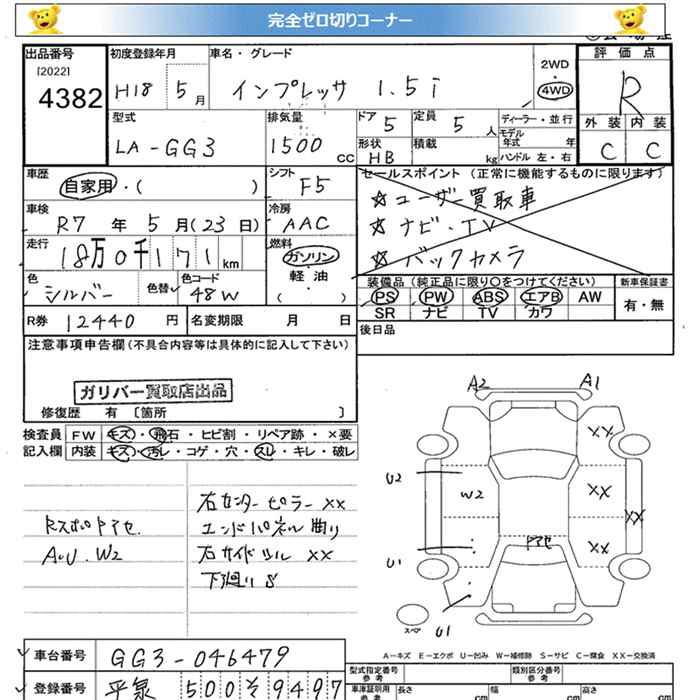 完全ゼロ切りコーナー
出品番号
[2022]
4382
初度登録年月
H18 5月
車名・グレード
インプレッサ 1.5i
2WD
・
4WD
評価点
R
外装 内装
C C
型式
LA-GG3
排気量
1500 CC
ドア 5
定員 5 人
形状 HB
積載 kg
ディーラー・並行
モデル年式 年
ハンドル 左・右
車歴
自家用・( )
シフト F5
車検
R7 年 5月(23日)
冷房 AAC
走行
18万0千171km
燃料
ガソリン
軽・油
( )
色
シルバー
色替
色コード
48W
R券 12440 円
名変期限 月 日
セールスポイント (正常に機能するものに限ります)
☆ユーザー買取車
☆ナビ・TV
☆バックカメラ
装備品(純正品に限り○をつけてください)
PS PW ABS エアB AW
SR ナビ TV カワ
新車保証書
有・無
後日品
注意事項申告欄(不具合内容等は具体的に記入して下さい)
ガリバー買取店出品
修復歴 有〔箇所 〕
検査員
記入欄
FW キズ・飛石・ヒビ割・リペア跡・×要
内装 キズ・汚レ・コゲ・穴・スレ・キレ・破レ
RスポイトアセA
A・U.W2
右センターピラー××
エンドパネル曲り
右サイドシル××
下廻りS
A2
A1
××
U2
W2
××
××
トアセ
××
U1
U1
スペア
A−キズ E−エクボ U−凹み W−補修跡 S−サビ C−腐食 XX−交換済
車台番号 GG3-046479
登録番号 500 そ 9497
型式指定番号
類別区分番号
車庫証明用参考
長さ cm
幅 cm
高さ cm